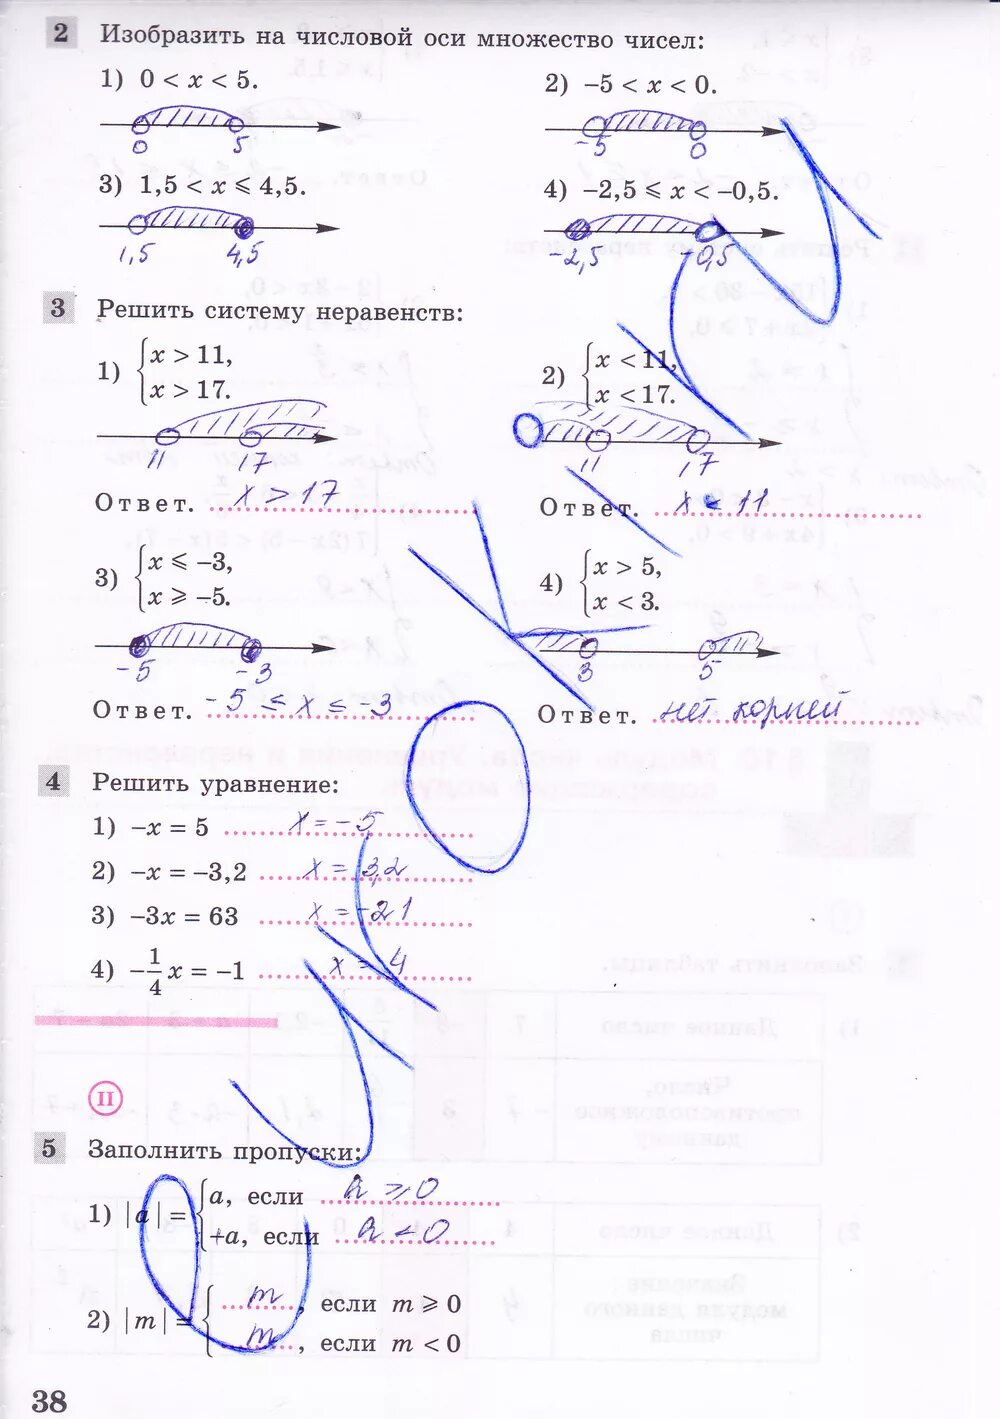 2 Изобразить на числовой оси множество чисел:
1) 0 < x < 5.
2) −5 < x < 0.
0 5
-5 0
3) 1,5 < x ⩽ 4,5.
4) −2,5 ⩽ x < −0,5.
1,5 4,5
-2,5 -0,5
3 Решить систему неравенств:
1) { x > 11,
x > 17.
2) { x < 11,
x < 17.
11 17
11 17
Ответ. x > 17
Ответ. x < 11
3) { x ⩽ −3,
x ⩾ −5.
4) { x > 5,
x < 3.
-5 -3
3 5
Ответ. -5 ≤ x ≤ -3
Ответ. нет корней
4 Решить уравнение:
1) −x = 5 x = -5
2) −x = −3,2 x = 3,2
3) −3x = 63 x = -21
4) −1/4 x = −1 x = 4
II
5 Заполнить пропуски:
1) |a| = { a, если a ≥ 0
+a, если a < 0
2) |m| = { m, если m ⩾ 0
m, если m < 0
38